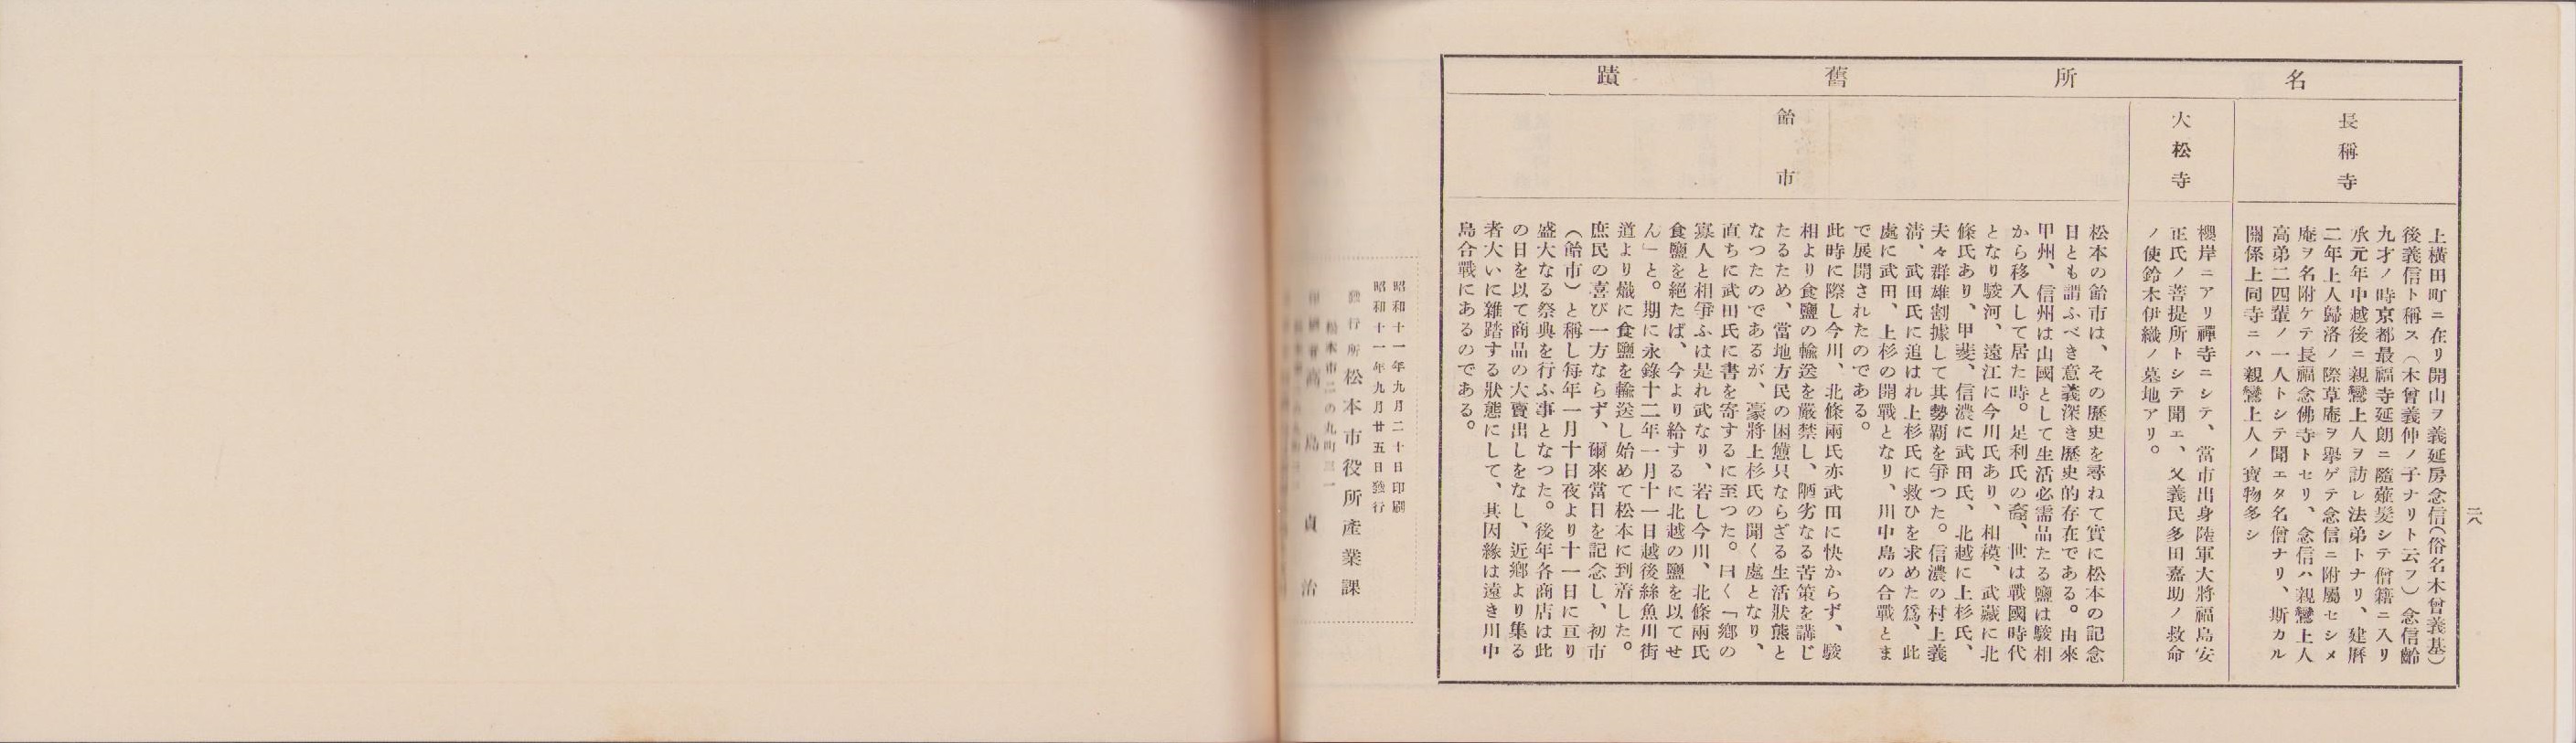 二八
名所舊蹟
長稱寺
上横田町ニ在リ開山ヲ義延房念信(俗名木曾義基)
後義信ト稱ス(木曾義仲ノ子ナリト云フ)念信齡
九才ノ時京都最福寺延朗ニ隨薙髪シテ僧籍ニ入リ
承元年中越後ニ親鸞上人ヲ訪レ法弟トナリ、建暦
二年上人歸洛ノ際草庵ヲ擧ゲテ念信ニ附屬セシメ
庵ヲ名附ケテ長福念佛寺トセリ、念信ハ親鸞上人
高弟二四輩ノ一人トシテ聞エタ名僧ナリ、斯カル
關係上同寺ニハ親鸞上人ノ寶物多シ
大松寺
櫻岸ニアリ禪寺ニシテ、當市出身陸軍大將福島安
正氏ノ菩提所トシテ聞エ、又義民多田嘉助ノ救命
ノ使鈴木伊織ノ墓地アリ。
飴市
松本の飴市は、その歷史を尋ねて實に松本の記念
日とも謂ふべき意義深き歷史的存在である。由來
甲州、信州は山國として生活必需品たる鹽は駿相
から移入して居た時。足利氏の裔、世は戰國時代
となり駿河、遠江に今川氏あり、相模、武藏に北
條氏あり、甲斐、信濃に武田氏、北越に上杉氏、
夫々群雄割據して其勢覇を爭つた。信濃の村上義
淸、武田氏に追はれ上杉氏に救ひを求めた爲、此
處に武田、上杉の開戰となり、川中島の合戰とま
で展開されたのである。
此時に際し今川、北條兩氏亦武田に快からず、駿
相より食鹽の輸送を嚴禁し、陋劣なる苦策を講じ
たるため、當地方民の困憊只ならざる生活狀態と
なつたのであるが、豪將上杉氏の聞く處となり、
直ちに武田氏に書を寄するに至つた。曰く「鄕の
寡人と相爭ふは是れ武なり、若し今川、北條兩氏
食鹽を絕たば、今より給するに北越の鹽を以てせ
ん」と。期に永錄十二年一月十一日越後絲魚川街
道より熾に食鹽を輸送し始めて松本に到着した。
庶民の喜び一方ならず、爾來當日を記念し、初市
(飴市)と稱し每年一月十日夜より十一日に亘り
盛大なる祭典を行ふ事となつた。後年各商店は此
の日を以て商品の大賣出しをなし、近鄕より集る
者大いに雜踏する狀態にして、其因緣は遠き川中
島合戰にあるのである。
昭和十一年九月二十日印刷
昭和十一年九月廿五日發行
發行所 松本市役所產業課
松本市二の丸町三一
印刷者 高島貞治